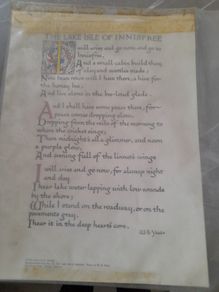 THE LAKE ISLE OF INNISFREE
I will arise and go now, and go to
Innisfree,
And a small cabin build there,
of clay and wattles made;
Nine bean rows will I have there, a hive for
the honey bee,
And live alone in the bee-loud glade.
And I shall have some peace there, for
peace comes dropping slow,
Dropping from the veils of the morning to
where the cricket sings;
There midnight's all a glimmer, and noon
a purple glow,
And evening full of the linnet's wings
I will arise and go now, for always night
and day
I hear lake water lapping with low sounds
by the shore;
While I stand on the roadway, or on the
pavements gray,
I hear it in the deep heart's core.
W.B. Yeats